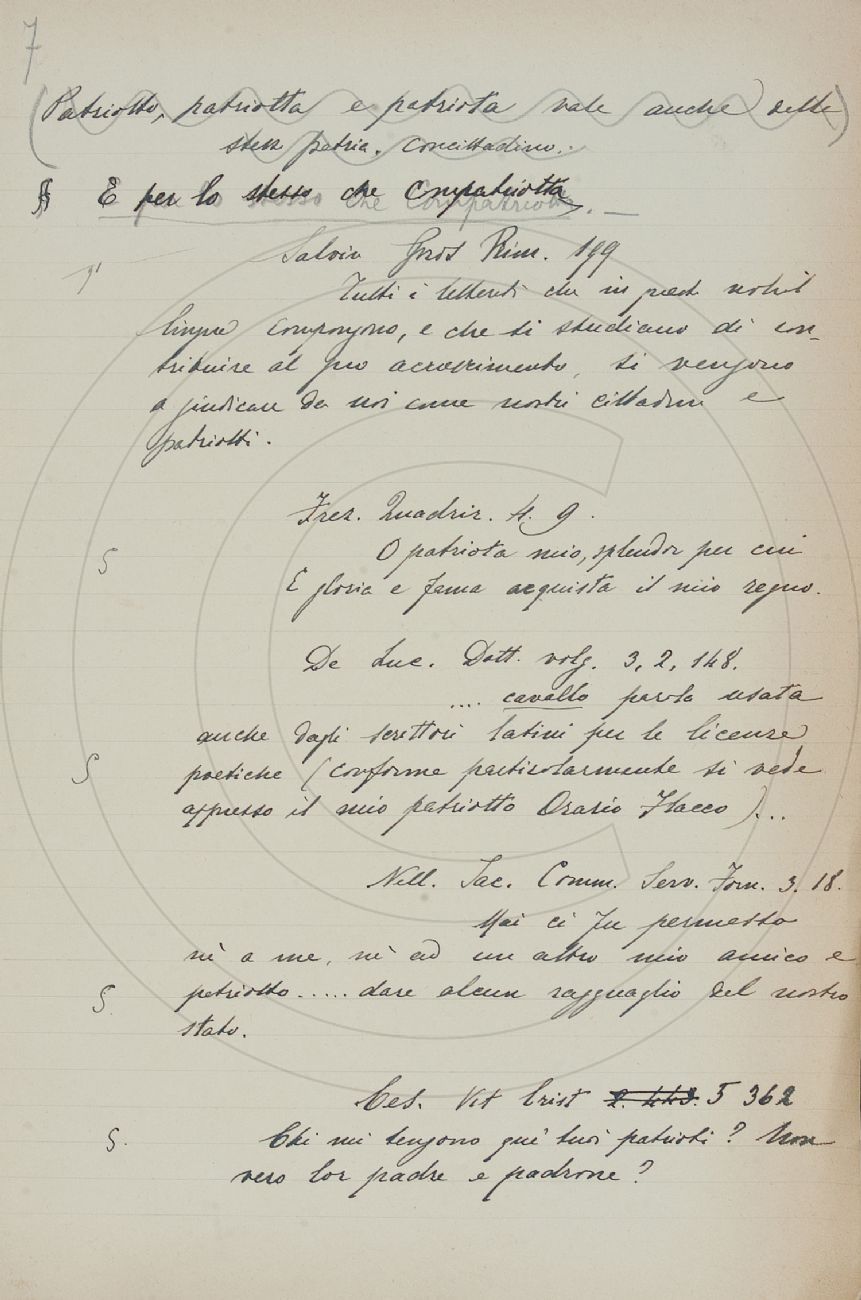 7
(Patriotto, patriotta e patriota vale anche della
stessa patria. concittadino.)
§ E per lo stesso che Compatriotta. —
Salvin Pros Rim. 199
Tutti i letterati che in questa nobil
lingua compongono, e che si studiano di con-
tribuire al suo accrescimento, si vengono
a giudicare da noi come nostri cittadini e
patriotti.
Frez. Quadrir. 4. 9.
§ O patriota mio, splendor per cui
E gloria e fama acquista il mio regno.
De Luc. Dott. volg. 3, 2, 148.
.... cavallo parola usata
anche dagli scrittori latini per le licenze
§ poetiche (conforme particolarmente si vede
appresso il mio patriotto Orazio Flacco)...
Nell. Iac. Comm. Serv. Fom. 3. 18.
Mai ci fu permesso
nè a me, nè ad un altro mio amico e
§. patriotto..... dare alcun ragguaglio del nostro
stato.
Ces. Vit Crist 2. 443. 5 362
§. Chi mi tengono que' tuoi patrioti? Non
vero lor padre e padrone?